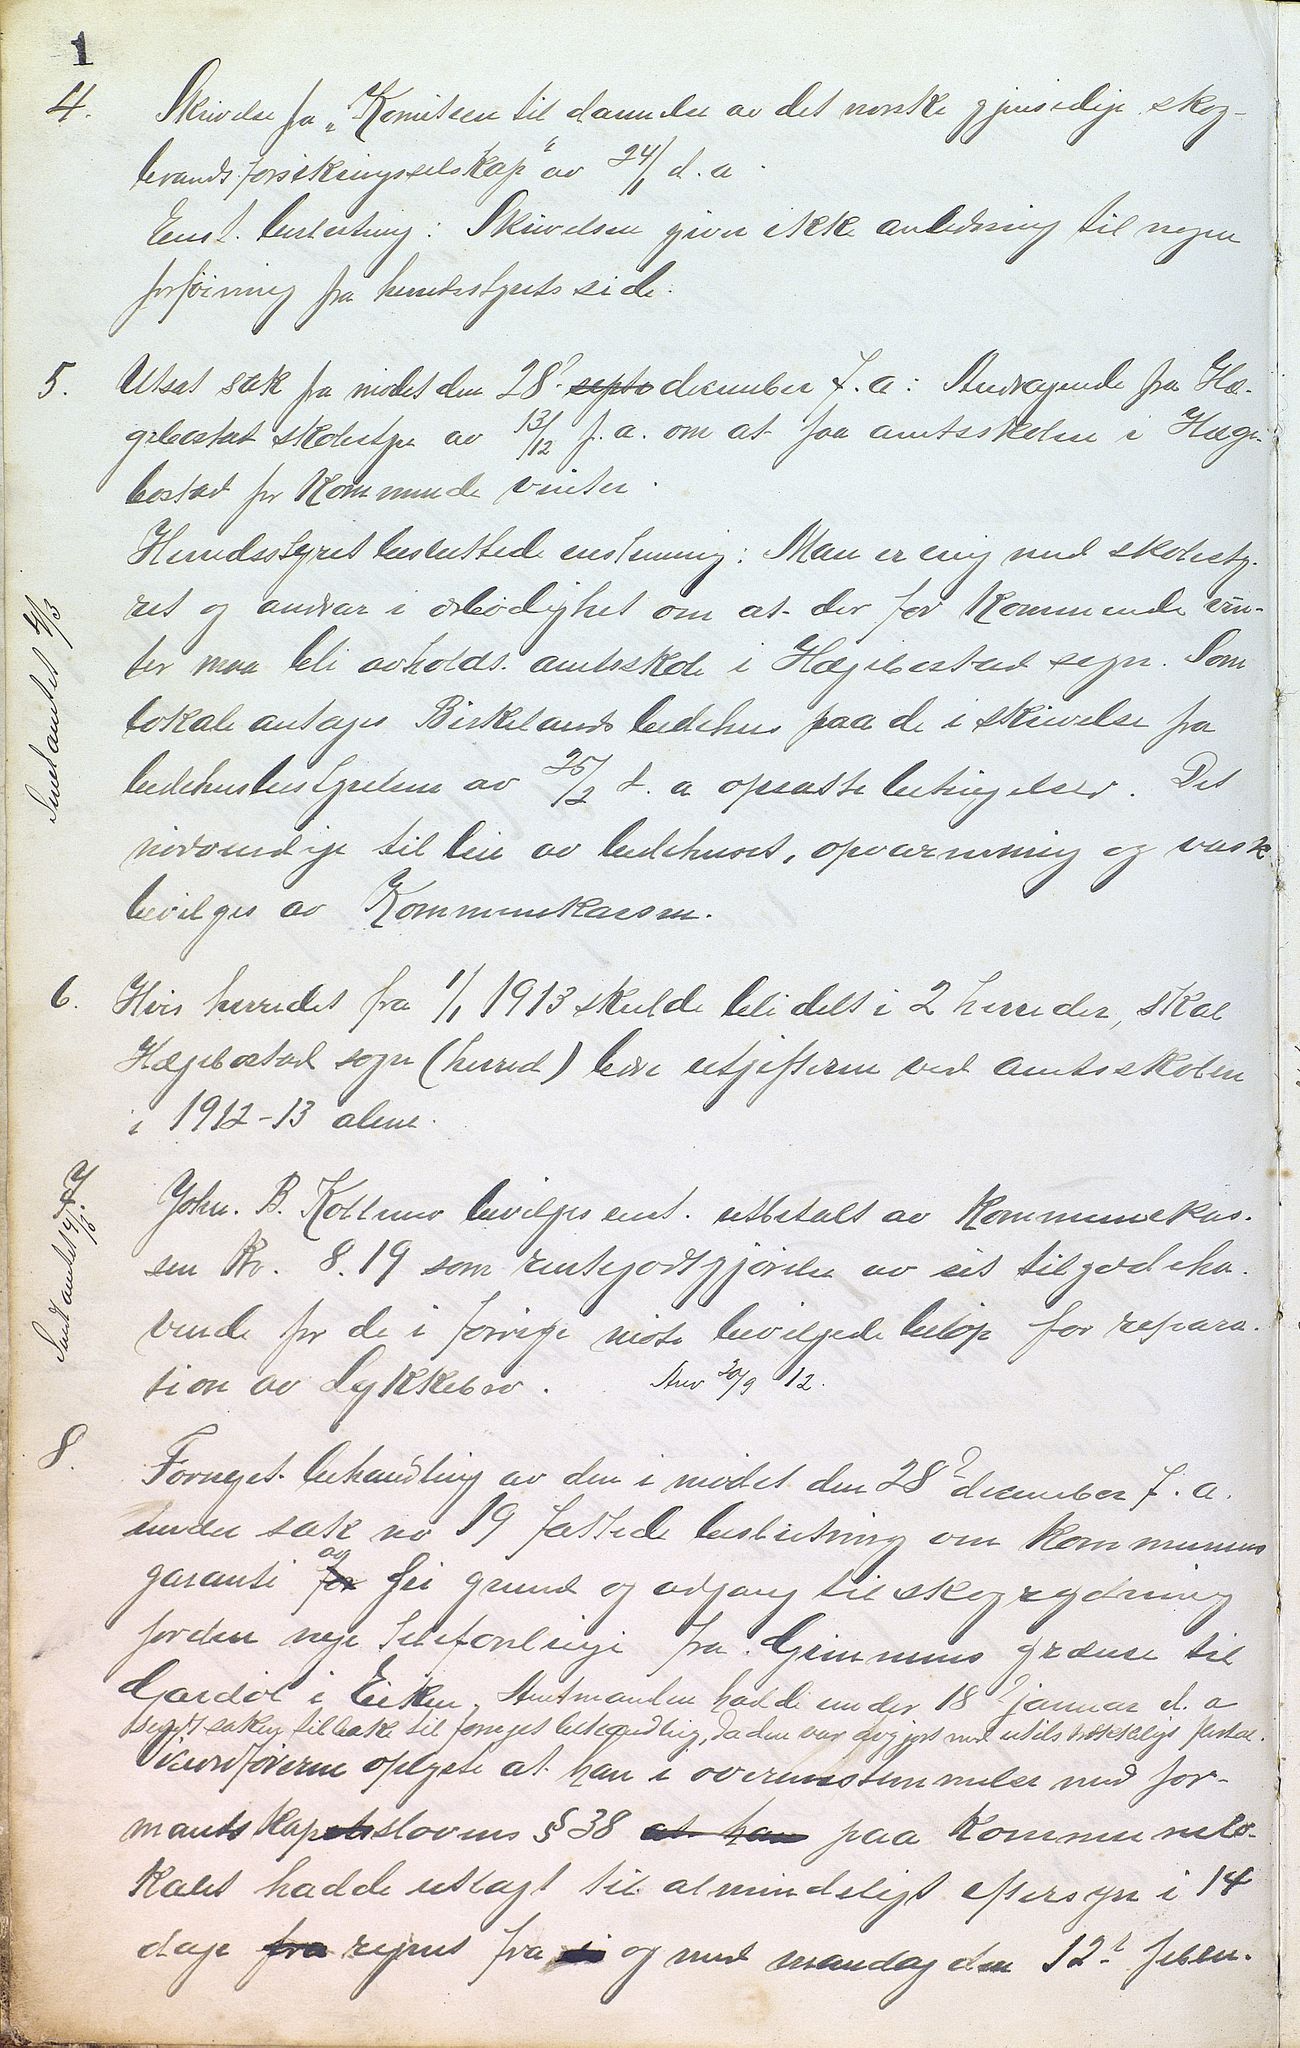 1
4. Skrivelse fra "Komiteen til dannelse av det norske gjensidige skog-
brandsforsikringsselskap" av 24/1 d.a.
Enst. beslutning: Skrivelsen giver ikke anledning til nogen
forføining fra herredsstyrets side.
5. Utsat sak fra mødet den 28de septe december f.a: Andragende fra Hæ-
gebostad skolestyre av 13/12 f.a. om at faa amtsskolen i Hæge-
bostad for kommende vinter.
Herredsstyret besluttede enstemmig: Man er enig med skolesty-
ret og andrar i ærbødighet om at der for kommende vin-
ter maa bli avholdt amtsskole i Hægebostad sogn. Som
lokale antages Birkelands bedehus paa de i skrivelse fra
bedehusbestyrelsen av 25/2 d.a opsatte betingelser. Det
nødvendige til leie av bedehuset, opvarmning og vask
bevilges av kommunekassen.
Sendt amtet 4/3
6. Hvis herredet fra 1/1 1913 skulde bli delt i 2 herreder, skal
Hægebostad sogn (herred) bære utgifterne ved amtsskolen
i 1912-13 alene.
7. John. B. Kollmo bevilges enst. utbetalt av kommunekas-
sen Kr. 8.19 som rentegodtgjørelse av sit tilgodeha-
vende for de i forrige møte bevilgede beløp for repara-
tion av Lykkebro. Anv 20/9 12.
Sendt amtet
8. Fornyet behandling av den i mødet den 28de december f.a.
under sak no 19 fattede beslutning om kommunens
garanti for av fri grund og adgang til skogrydning
for den nye telefonlinje fra Grinnums grænse til
Gardøl i Eiken. Amtmanden hadde under 18de januar d.a
sendt saken tilbake til fornyet behandling, da den var avgjort med utilstrækkeligt flertal.
Viceordføreren oplyste at han i overensstemmelse med for-
mandskapetslovens § 38 at han paa kommunelo-
kalet hadde utlagt til almindeligt eftersyn i 14
dage fra regnet fra og med mandag den 12te febru-